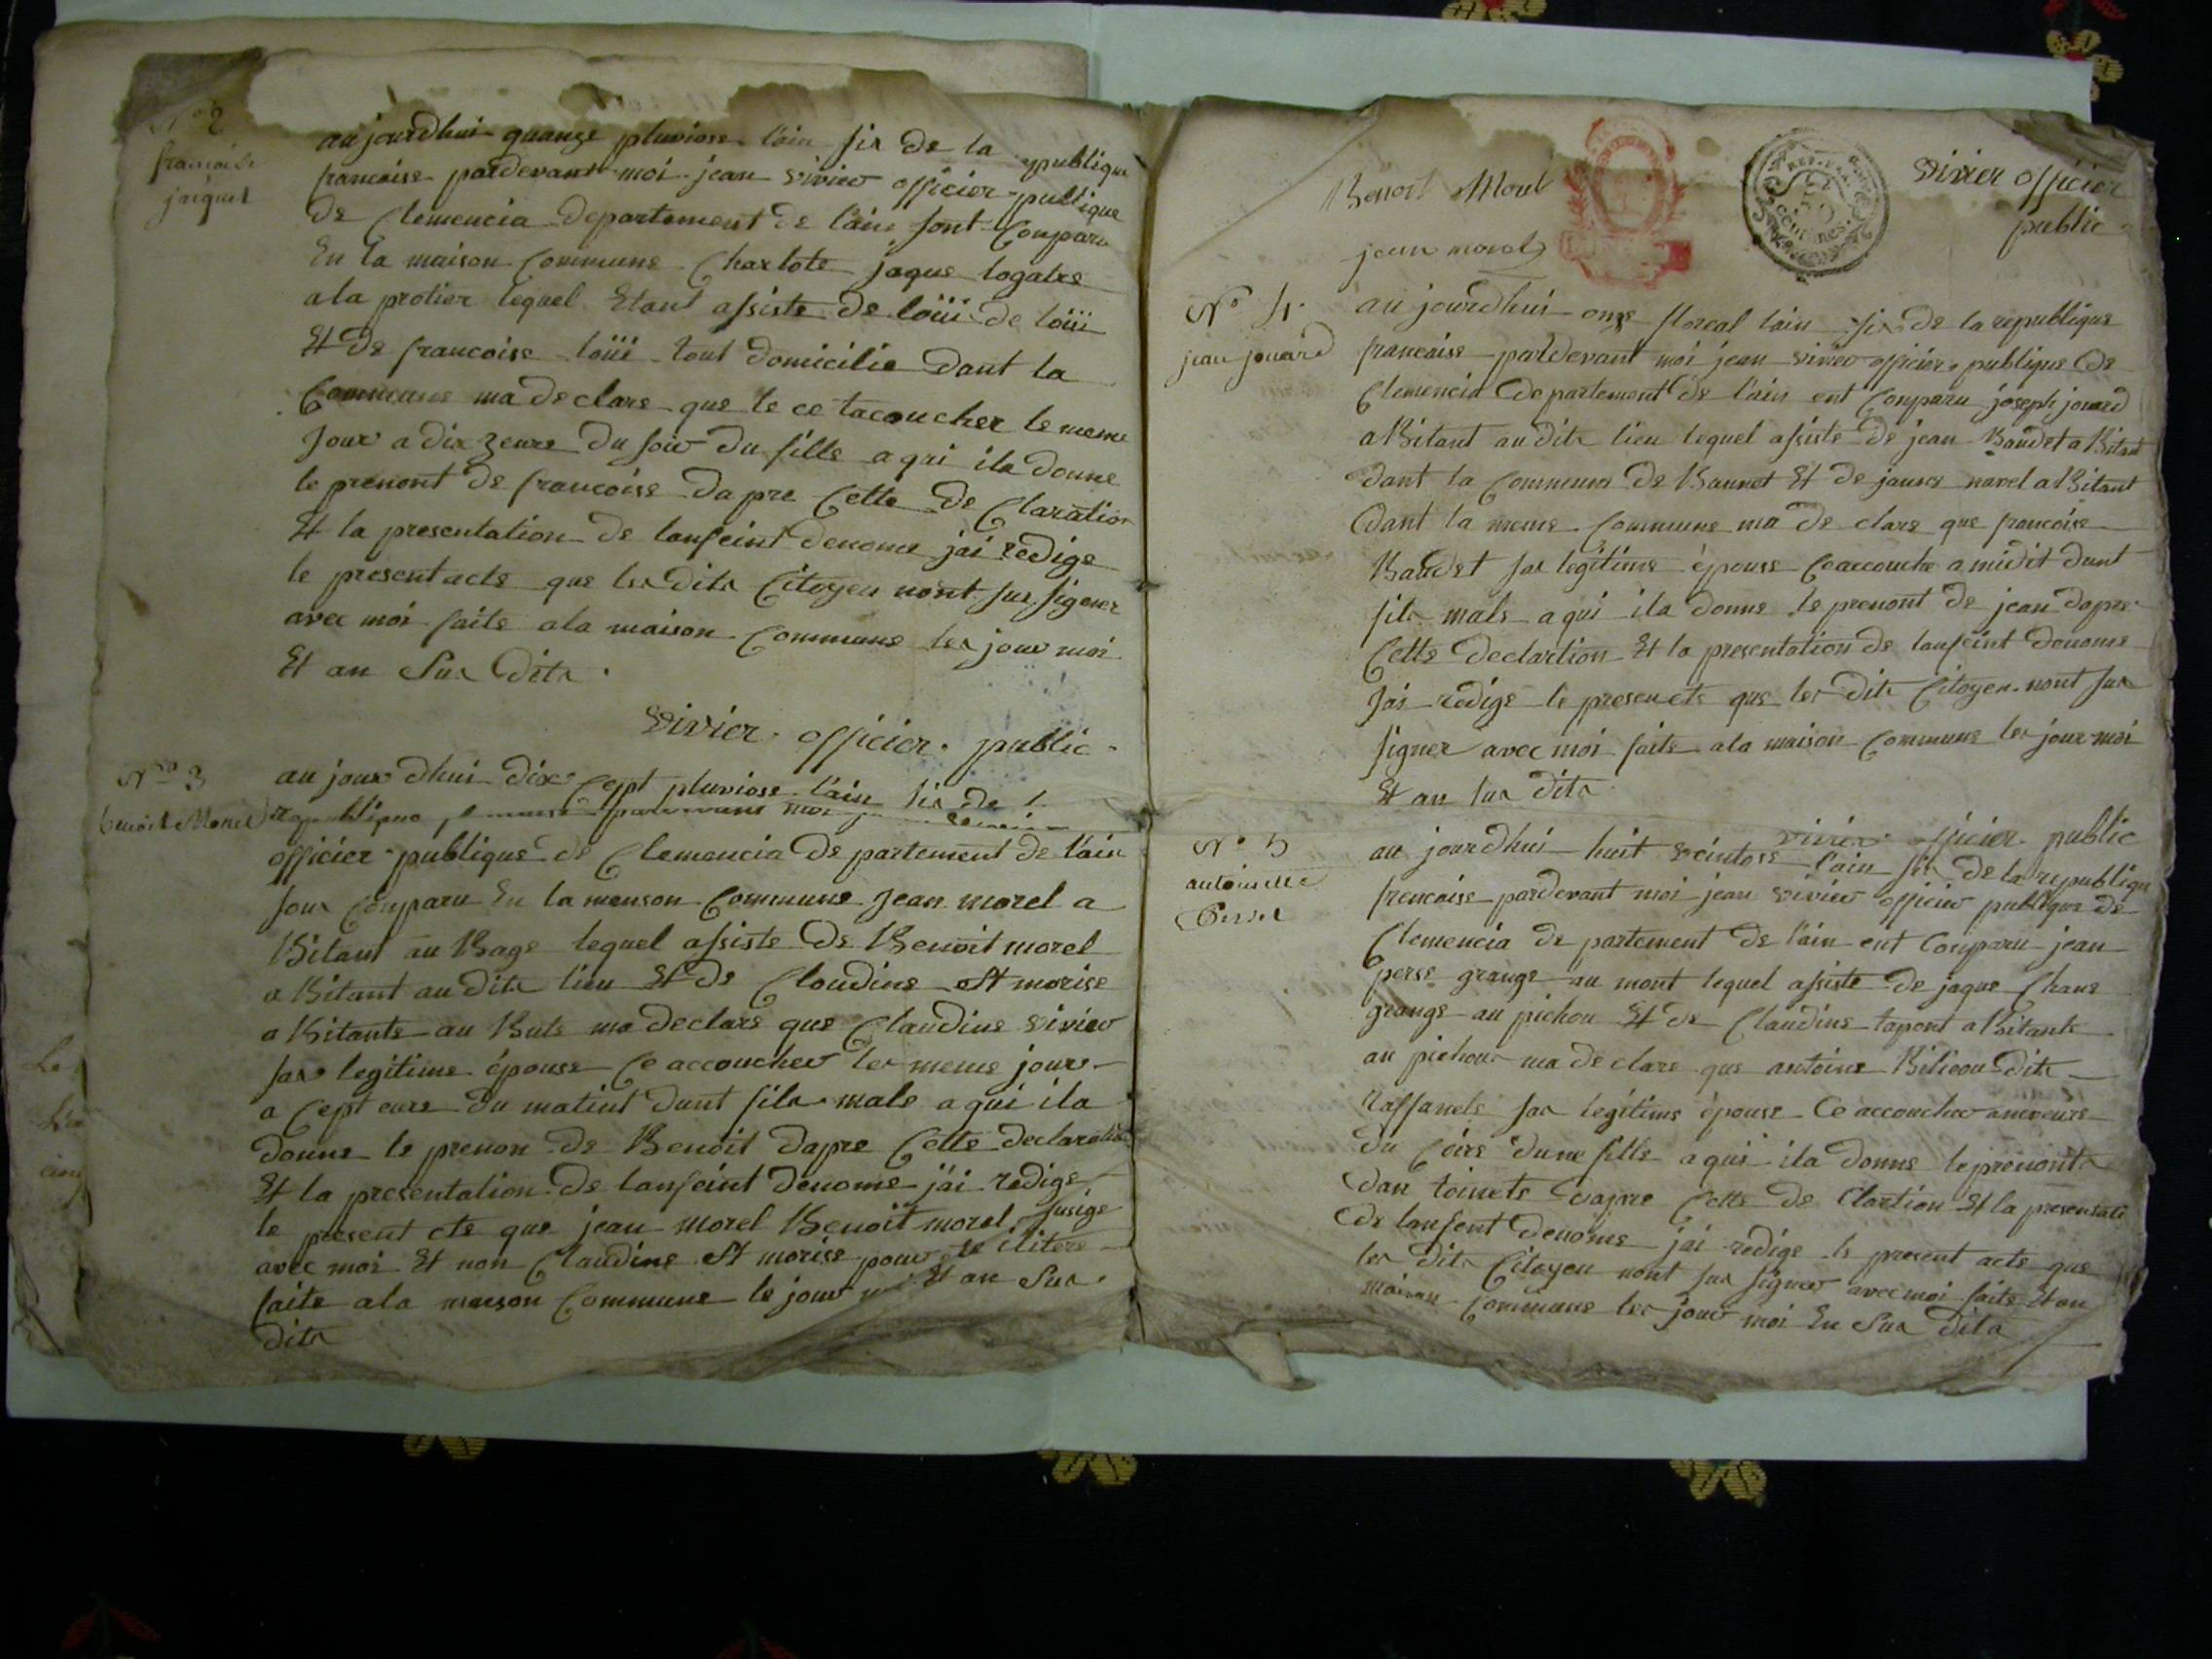 N° 2
francoise
jaquet
aujourdhui quanze pluviose lain six de la republique
francaise pardevant moi jean vivier officier publique
de Clemencia departement de lain sont Conparu
En la maison Commune Charlote jaque logatre
ala protier lequel Etant assiste de loüi de loüi
Et de francoise loüi tout domicilie dant la
Commune ma de clare que le ce tacoucher le meme
Jour a dix zeure du soir du fille a qui ila donne
le prenont de francoise dapre Cette de Claration
Et la presentation de lanfeint denome jai redige
le present acte que les dits Citoyen nont sus signer
avec moi faite ala maison Commune les jour moi
Et an Sus dits .
vivier . officier . public .
N° 3
benoit Morel
au jour dhui dix Cept pluviose lain six de l
republique pardevant moi
officier publique de Clemencia de partement de lain
sont Conparu En la meuson Commune Jean morel a
Bitant au Bage lequel assiste de Benoit morel
a Bitant au dits lieu Et de Cloudine St morise
a Bitants au Buts ma declare que Claudine vivier
sas legitime épouse Ce accoucher les meme jour
a Cept eure du matint dunt fils male a qui ila
donne le prenon de Benoit dapre Cette declaration
Et la presentation de lanfeint denome jai redige
le present cte que jean morel Benoit morel susige
avec moi Et non Claudine St morise pour ete iliterе
faite ala maeson Commune le jour moi Et an Sus
dits
Benoit Morel
vivier officier
public
jean morel
REP. FRA.
25
centimes
N° 4.
jean jouard
au jourdhui onze floreal lain six de la republique
francaise pardevant moi jean vivier officier publique de
Clemencia departement de lain ent Conparu joseph jouard
a Bitant au dits lieu lequel assiste de jean Baudet a Bitant
dant la Commune de Bannet Et de navel a Bitant
dant la meme Commune ma de clare que francoise
Baudet sas legitime épouse Ce accouche a midit dunt
fils male a qui ila donne le prenont de jean dapre
Cette declartion Et la presentation de lanfeint denome
Jai redige le presencte que les dits Citoyen nont sus
signer avec moi faite ala maison Commune les jour moi
Et an sus dits
vivier officier public
N° 5
antoinette
Perset
au jourdhui huit veintose lain six de la republique
frencaise pardevant moi jean vivier officier publique de
Clemencia de partement de lain ent Conparu jean
perse grange au mont lequel assiste de jaque Chane
grange au pichou Et de Claudine tapont a Bitante
au pichou ma de clare que antoine Bilicou dits
raffanele sas legitime épouse Ce accoucher
du Coire dune fille a qui ila donne le prenonts
dan toinete dapre Cette de Clartion Et la presentati
de lanfent denome jai redige le present acte que
les dits Citoyen nont sus signer avec moi faite Et an
maison Commune les jour moi En Sus dits